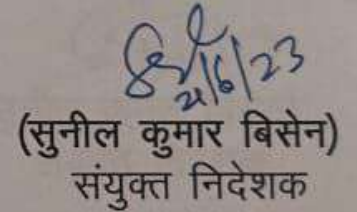 21/6/23
(सुनील कुमार बिसेन)
संयुक्त निदेशक